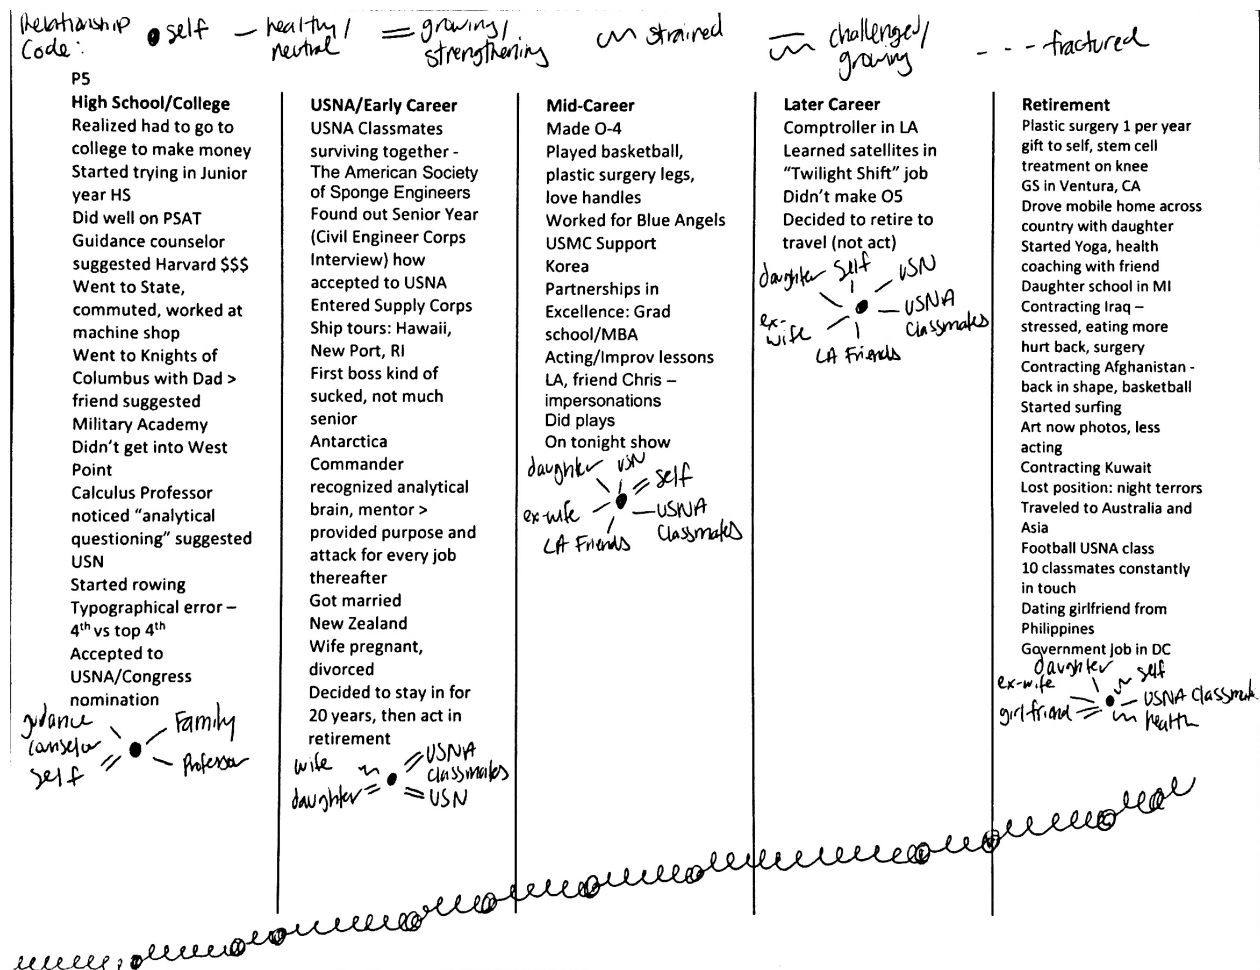 Relationship Code: self healthy/neutral growing/strengthening strained challenged/growing --- fractured
P5
High School/College
Realized had to go to
college to make money
Started trying in Junior
year HS
Did well on PSAT
Guidance counselor
suggested Harvard $$$
Went to State,
commuted, worked at
machine shop
Went to Knights of
Columbus with Dad >
friend suggested
Military Academy
Didn't get into West
Point
Calculus Professor
noticed "analytical
questioning" suggested
USN
Started rowing
Typographical error –
4th vs top 4th
Accepted to
USNA/Congress
nomination
guidance
counselor
self
Family
Professor
USNA/Early Career
USNA Classmates
surviving together -
The American Society
of Sponge Engineers
Found out Senior Year
(Civil Engineer Corps
Interview) how
accepted to USNA
Entered Supply Corps
Ship tours: Hawaii,
New Port, RI
First boss kind of
sucked, not much
senior
Antarctica
Commander
recognized analytical
brain, mentor >
provided purpose and
attack for every job
thereafter
Got married
New Zealand
Wife pregnant,
divorced
Decided to stay in for
20 years, then act in
retirement
wife
daughter
USNA
classmates
USN
Mid-Career
Made O-4
Played basketball,
plastic surgery legs,
love handles
Worked for Blue Angels
USMC Support
Korea
Partnerships in
Excellence: Grad
school/MBA
Acting/Improv lessons
LA, friend Chris –
impersonations
Did plays
On tonight show
daughter
USN
self
ex-wife
USNA
Classmates
LA Friends
Later Career
Comptroller in LA
Learned satellites in
"Twilight Shift" job
Didn't make O5
Decided to retire to
travel (not act)
daughter
self
USN
ex-
wife
USNA
Classmates
LA Friends
Retirement
Plastic surgery 1 per year
gift to self, stem cell
treatment on knee
GS in Ventura, CA
Drove mobile home across
country with daughter
Started Yoga, health
coaching with friend
Daughter school in MI
Contracting Iraq –
stressed, eating more
hurt back, surgery
Contracting Afghanistan -
back in shape, basketball
Started surfing
Art now photos, less
acting
Contracting Kuwait
Lost position: night terrors
Traveled to Australia and
Asia
Football USNA class
10 classmates constantly
in touch
Dating girlfriend from
Philippines
Government job in DC
daughter
ex-wife
self
girlfriend
USNA Classmate
health